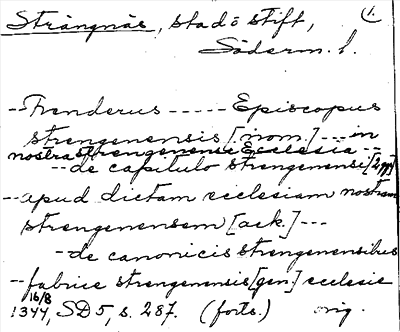 Strängnäs, stad o stift, 1.
Söderm. l.
-- Frenderus ----- Episcopus
strengenensis [nom.] --- in
nostra strengenensi Ecclesia --
-- de capitulo strengenensi [2 ggr]
-- apud dictam ecclesiam nostram
strengenensem [ack.] ---
- de canonicis strengenensibus
-- fabrice strengenensis [gen.] ecclesie
16/8
1344, SD 5, s. 287. (forts.) orig.